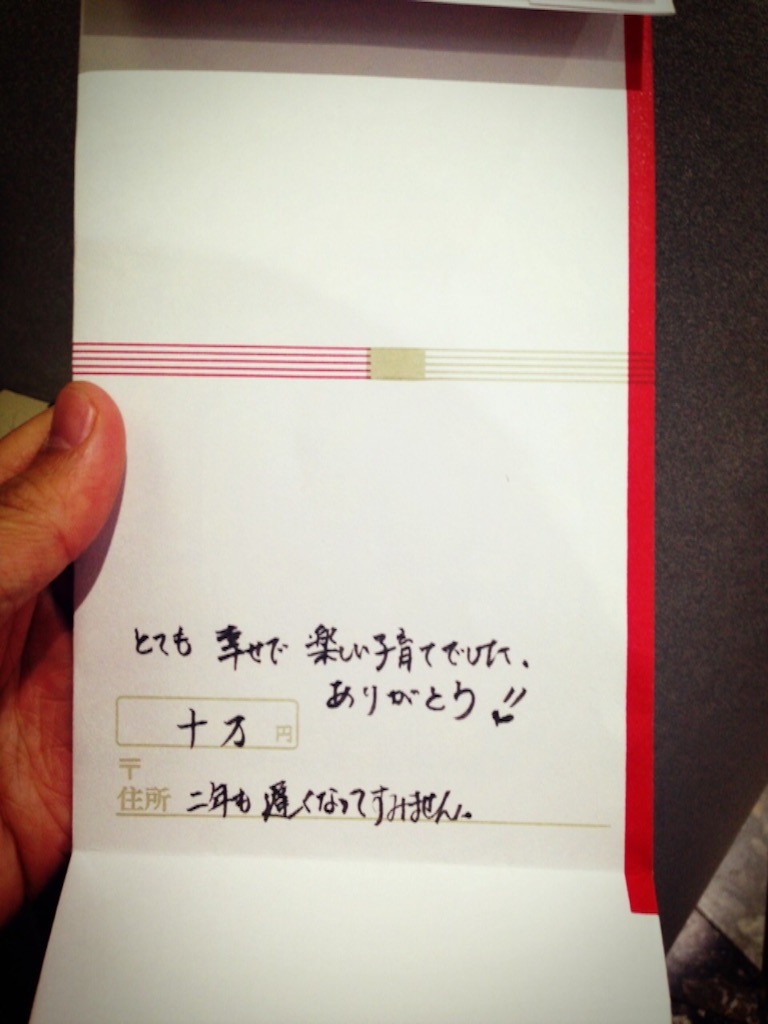 とても 幸せで 楽しい子育てでした、
ありがとう!!
十万 円
〒
住所 二年も 遅くなってすみません。